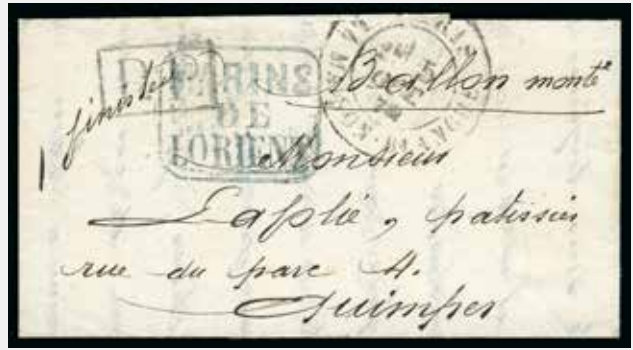 P.P.
MARINS
DE
LORIENT
Ballon monté
finistère
Monsieur
Laplié, patissier
rue du parc 4.
Quimper